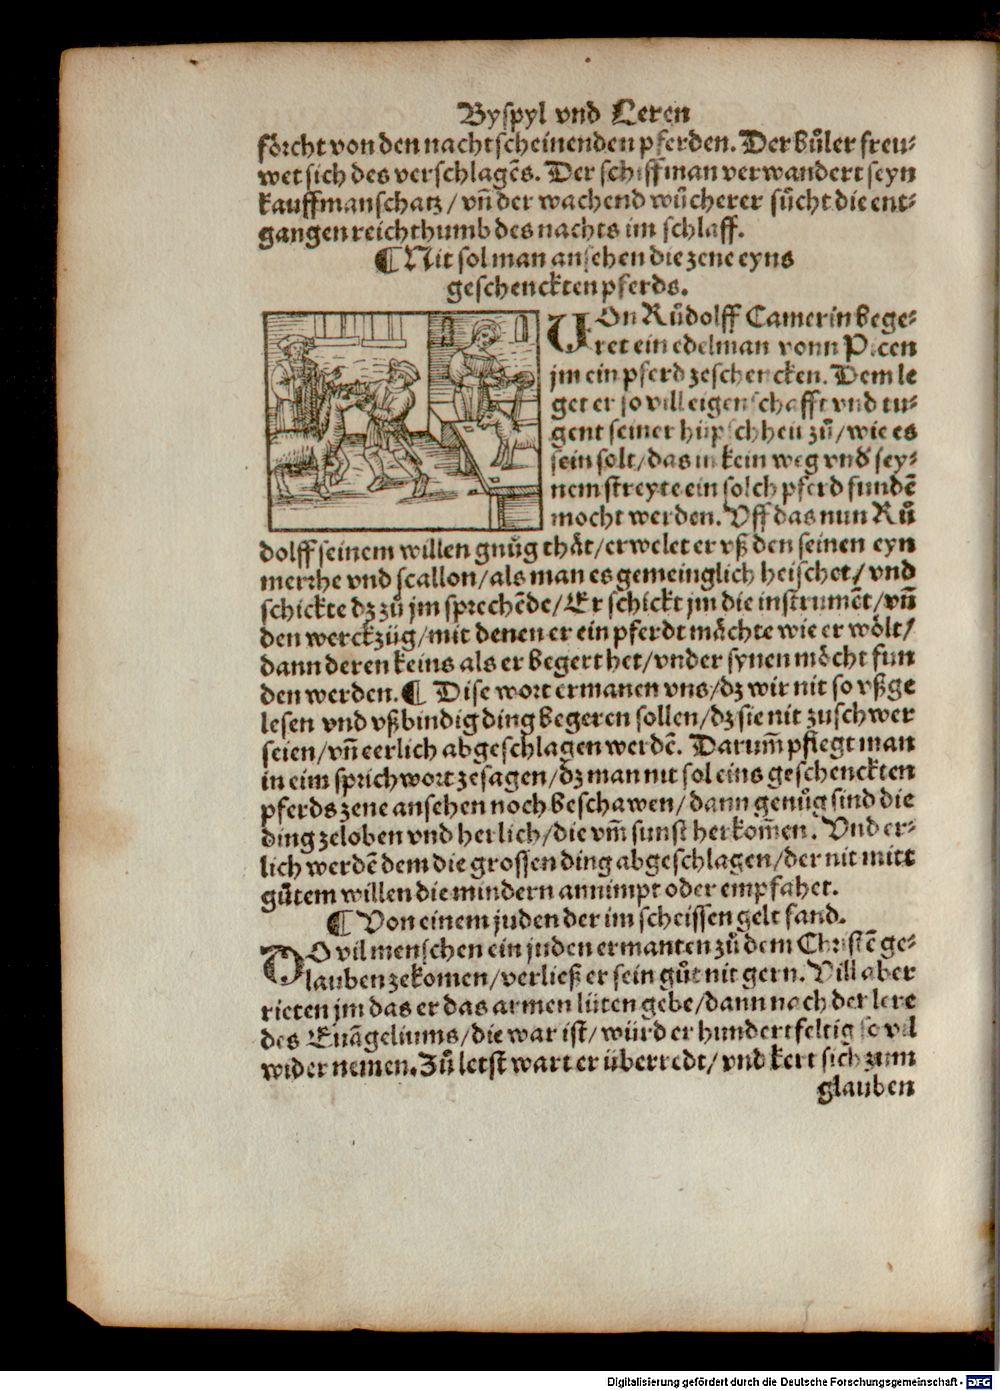 Byspyl vnd Leren
förcht von den nachtscheinenden pferden. Der bůler freu⸗
wet sich des verschlagēs. Der schiffman verwandert seyn
kauffmanschatz / vñ der wachend wůcherer sůcht die ent⸗
gangen reichthumb des nachts im schlaff.
¶ Nit sol man ansehen die zene eyns
geschenckten pferds.
VOn Růdolff Camerin bege⸗
ret ein edelman vonn Picen
jm ein pferd zeschencken. Dem le
get er so vill eigenschafft vnd tu⸗
gent seiner hüpschheit zů / wie es
sein solt / das in kein weg vnd sey⸗
nem streyte ein solch pferd fundē
mocht werden. Vff das nun Rů
dolff seinem willen gnůg thåt / erwelet er vß den seinen eyn
merrhe vnd scallon / als man es gemeinglich heischet / vnd
schickte dz zů jm sprechēde / Er schickt jm die instrumēt / vñ
den werckzüg / mit denen er ein pferdt måchte wie er wölt /
dann deren keins als er begert het / vnder synen möcht fun
den werden. ¶ Dise wort ermanen vns / dz wir nit so vßge
lesen vnd vßbindig ding begeren sollen / dz sie nit zuschwer
seien / vñ eerlich abgeschlagen werdē. Darum̃ pflegt man
in eim sprichwort zesagen / dz man nit sol eins geschenckten
pferds zene ansehen noch beschawen / dann genůg sind die
ding zeloben vnd herlich / die vm̃ sunst herkom̃en. Vnd er⸗
lich werdē dem die grossen ding abgeschlagen / der nit mitt
gůtem willen die mindern annimpt oder empfahet.
¶ Von einem juden der im scheissen gelt fand.
DO vil menschen ein juden ermanten zů dem Christē ge⸗
lauben zekomen / verließ er sein gůt nit gern. Vill aber
rieten jm das er das armen lüten gebe / dann nach der lere
des Euāgeliums / die war ist / würd er hundertfeltig so vil
wider nemen. Zů letst wart er überredt / vnd kert sich zum
glauben
Digitalisierung gefördert durch die Deutsche Forschungsgemeinschaft - DFG